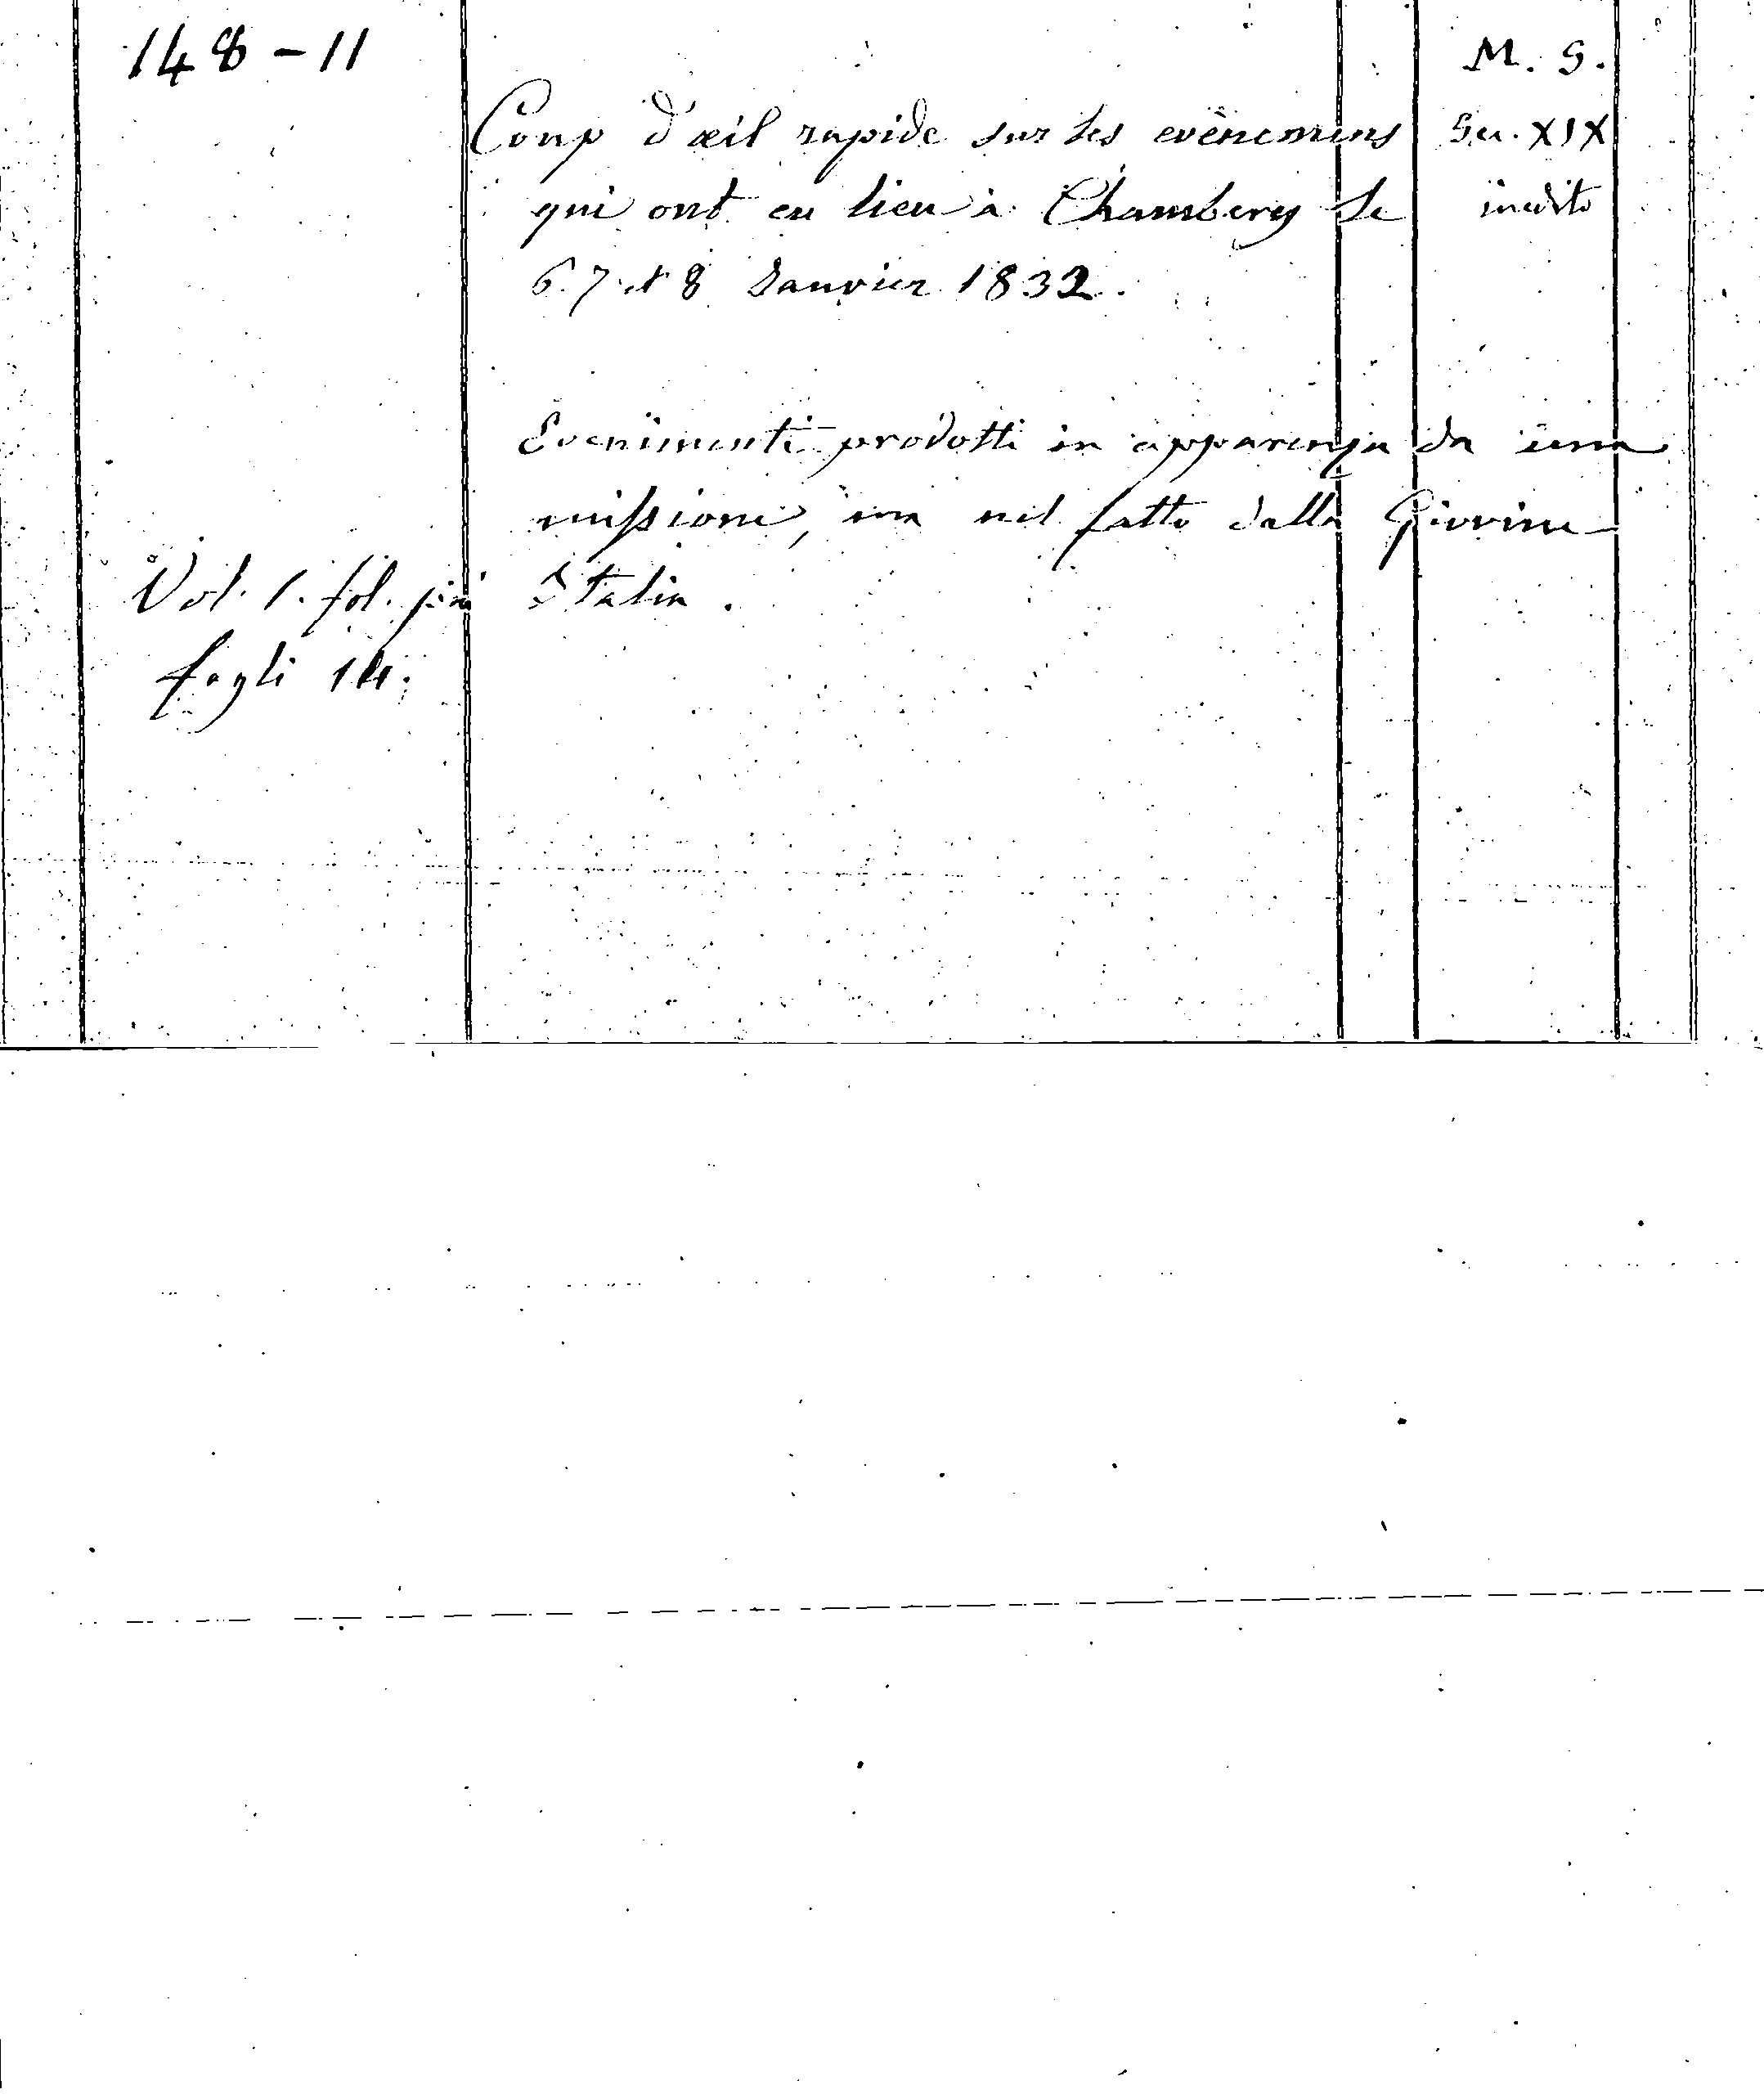 148 - 11
M. S.
Coup d'œil rapide sur les evènemens
Sec. XIX
qui ont eu lieu à Chambery le
inedito
6. 7 et 8 Janvier 1832.
Evenimenti prodotti in apparenza da una
missione, ma nel fatto dalla Giovine
Vol. 1. fol. più
Italia.
fogli 14.